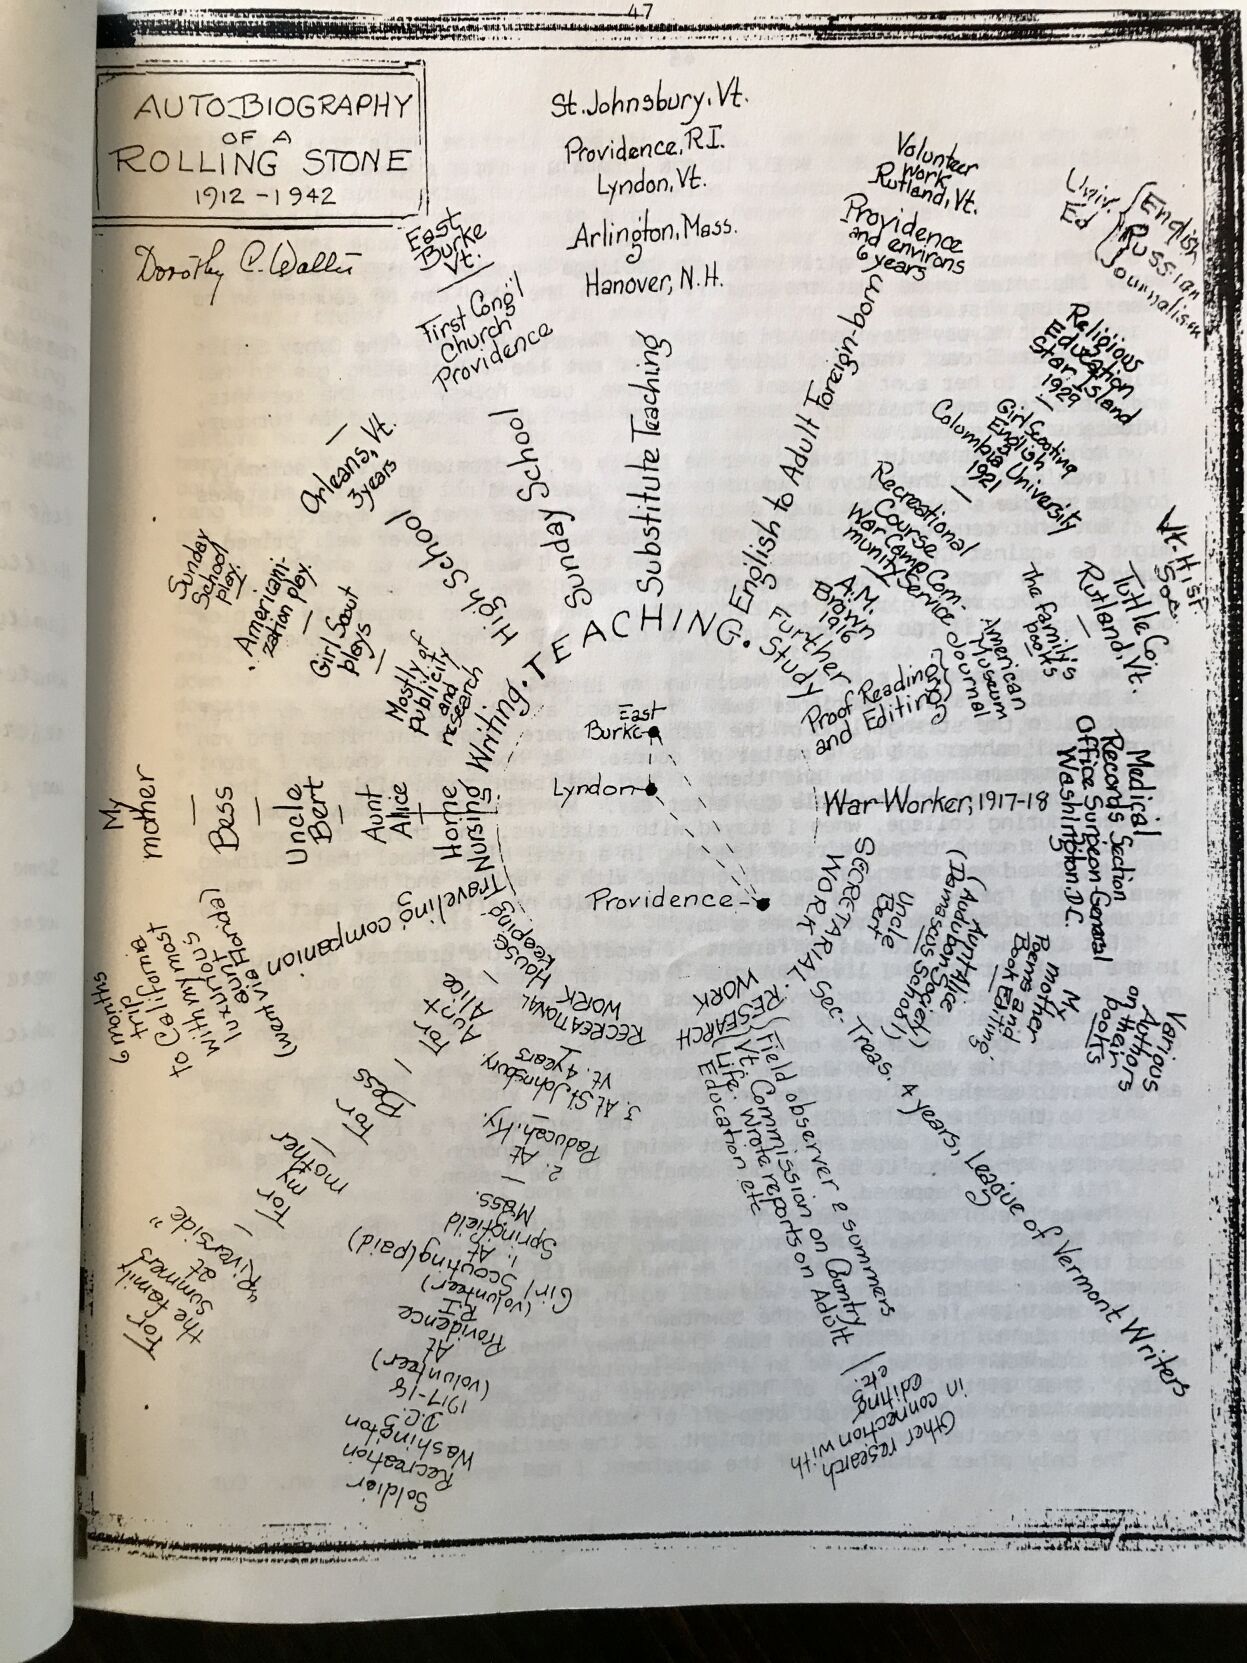 47
AUTOBIOGRAPHY
OF A
ROLLING STONE
1912 - 1942
Dorothy C. Wallis
St. Johnsbury, Vt.
Providence, R.I.
Lyndon, Vt.
Arlington, Mass.
Hanover, N.H.
Substitute Teaching
East
Burke
Vt.
First Cong'l
Church
Providence
Sunday School
Orleans, Vt.
3 years
High School
TEACHING.
Volunteer
Work,
Rutland, Vt.
Providence
and environs
6 years
English to Adult Foreign-born
Univ.
Ed
English
Russian
Journalism
Religious
Education
Star Island
1929
Girl Scouting
English
Columbia University
1921
Recreational
Course
War Camp Com-
munity Service
A.M.
Brown
1916
Further
Study
Vt. Hist.
Soc.
Tuttle Co.
Rutland, Vt.
The family's
books
American
Museum
Journal
Proof Reading
and Editing
War Worker, 1917-18
Medical
Records Section
Office Surgeon General
Washington D.C.
SECRETARIAL
WORK
Uncle
Bert
Aunt Alice
(Audubon Society)
(Damascus School)
My
mother
Poems and
Book Editing.
Various
Authors
on their
books
Sec. Treas. 4 years, League of Vermont Writers
RESEARCH
WORK
Field observer 2 summers
Vt. Commission on Country
Life. Wrote reports on Adult
Education etc
Other research
in connection with
editing
etc.
RECREATIONAL
WORK
3. At St. Johnsbury
Vt. 4 years
2. At
Paducah, Ky.
1. At
Springfield
Mass.
Girl Scouting (paid)
(volunteer)
At
Providence
R.I.
(volunteer)
1917-18
Soldier
Recreation
Washington
D.C.
House
keeping
For
Aunt
Alice
For
Bess
For
my
mother
For
the family
summers
at
"Riverside"
Traveling companion
6 months
trip
to California
with my most
luxurious
aunt
(went via Florida)
Home
Nursing
Aunt
Alice
Uncle
Bert
Bess
My
mother
Writing.
Mostly of
publicity
and
research
Girl Scout
plays
Americani-
zation play.
Sunday
School
play.
East
Burke
Lyndon
Providence